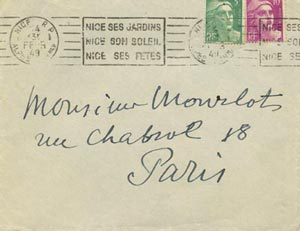 NICE R.P.
4
FE
49
NICE SES JARDINS
NICE SON SOLEIL
NICE SES FETES
NICE
NICE
NICE SES
Monsieur Mourlot
rue Chabrol 18
Paris